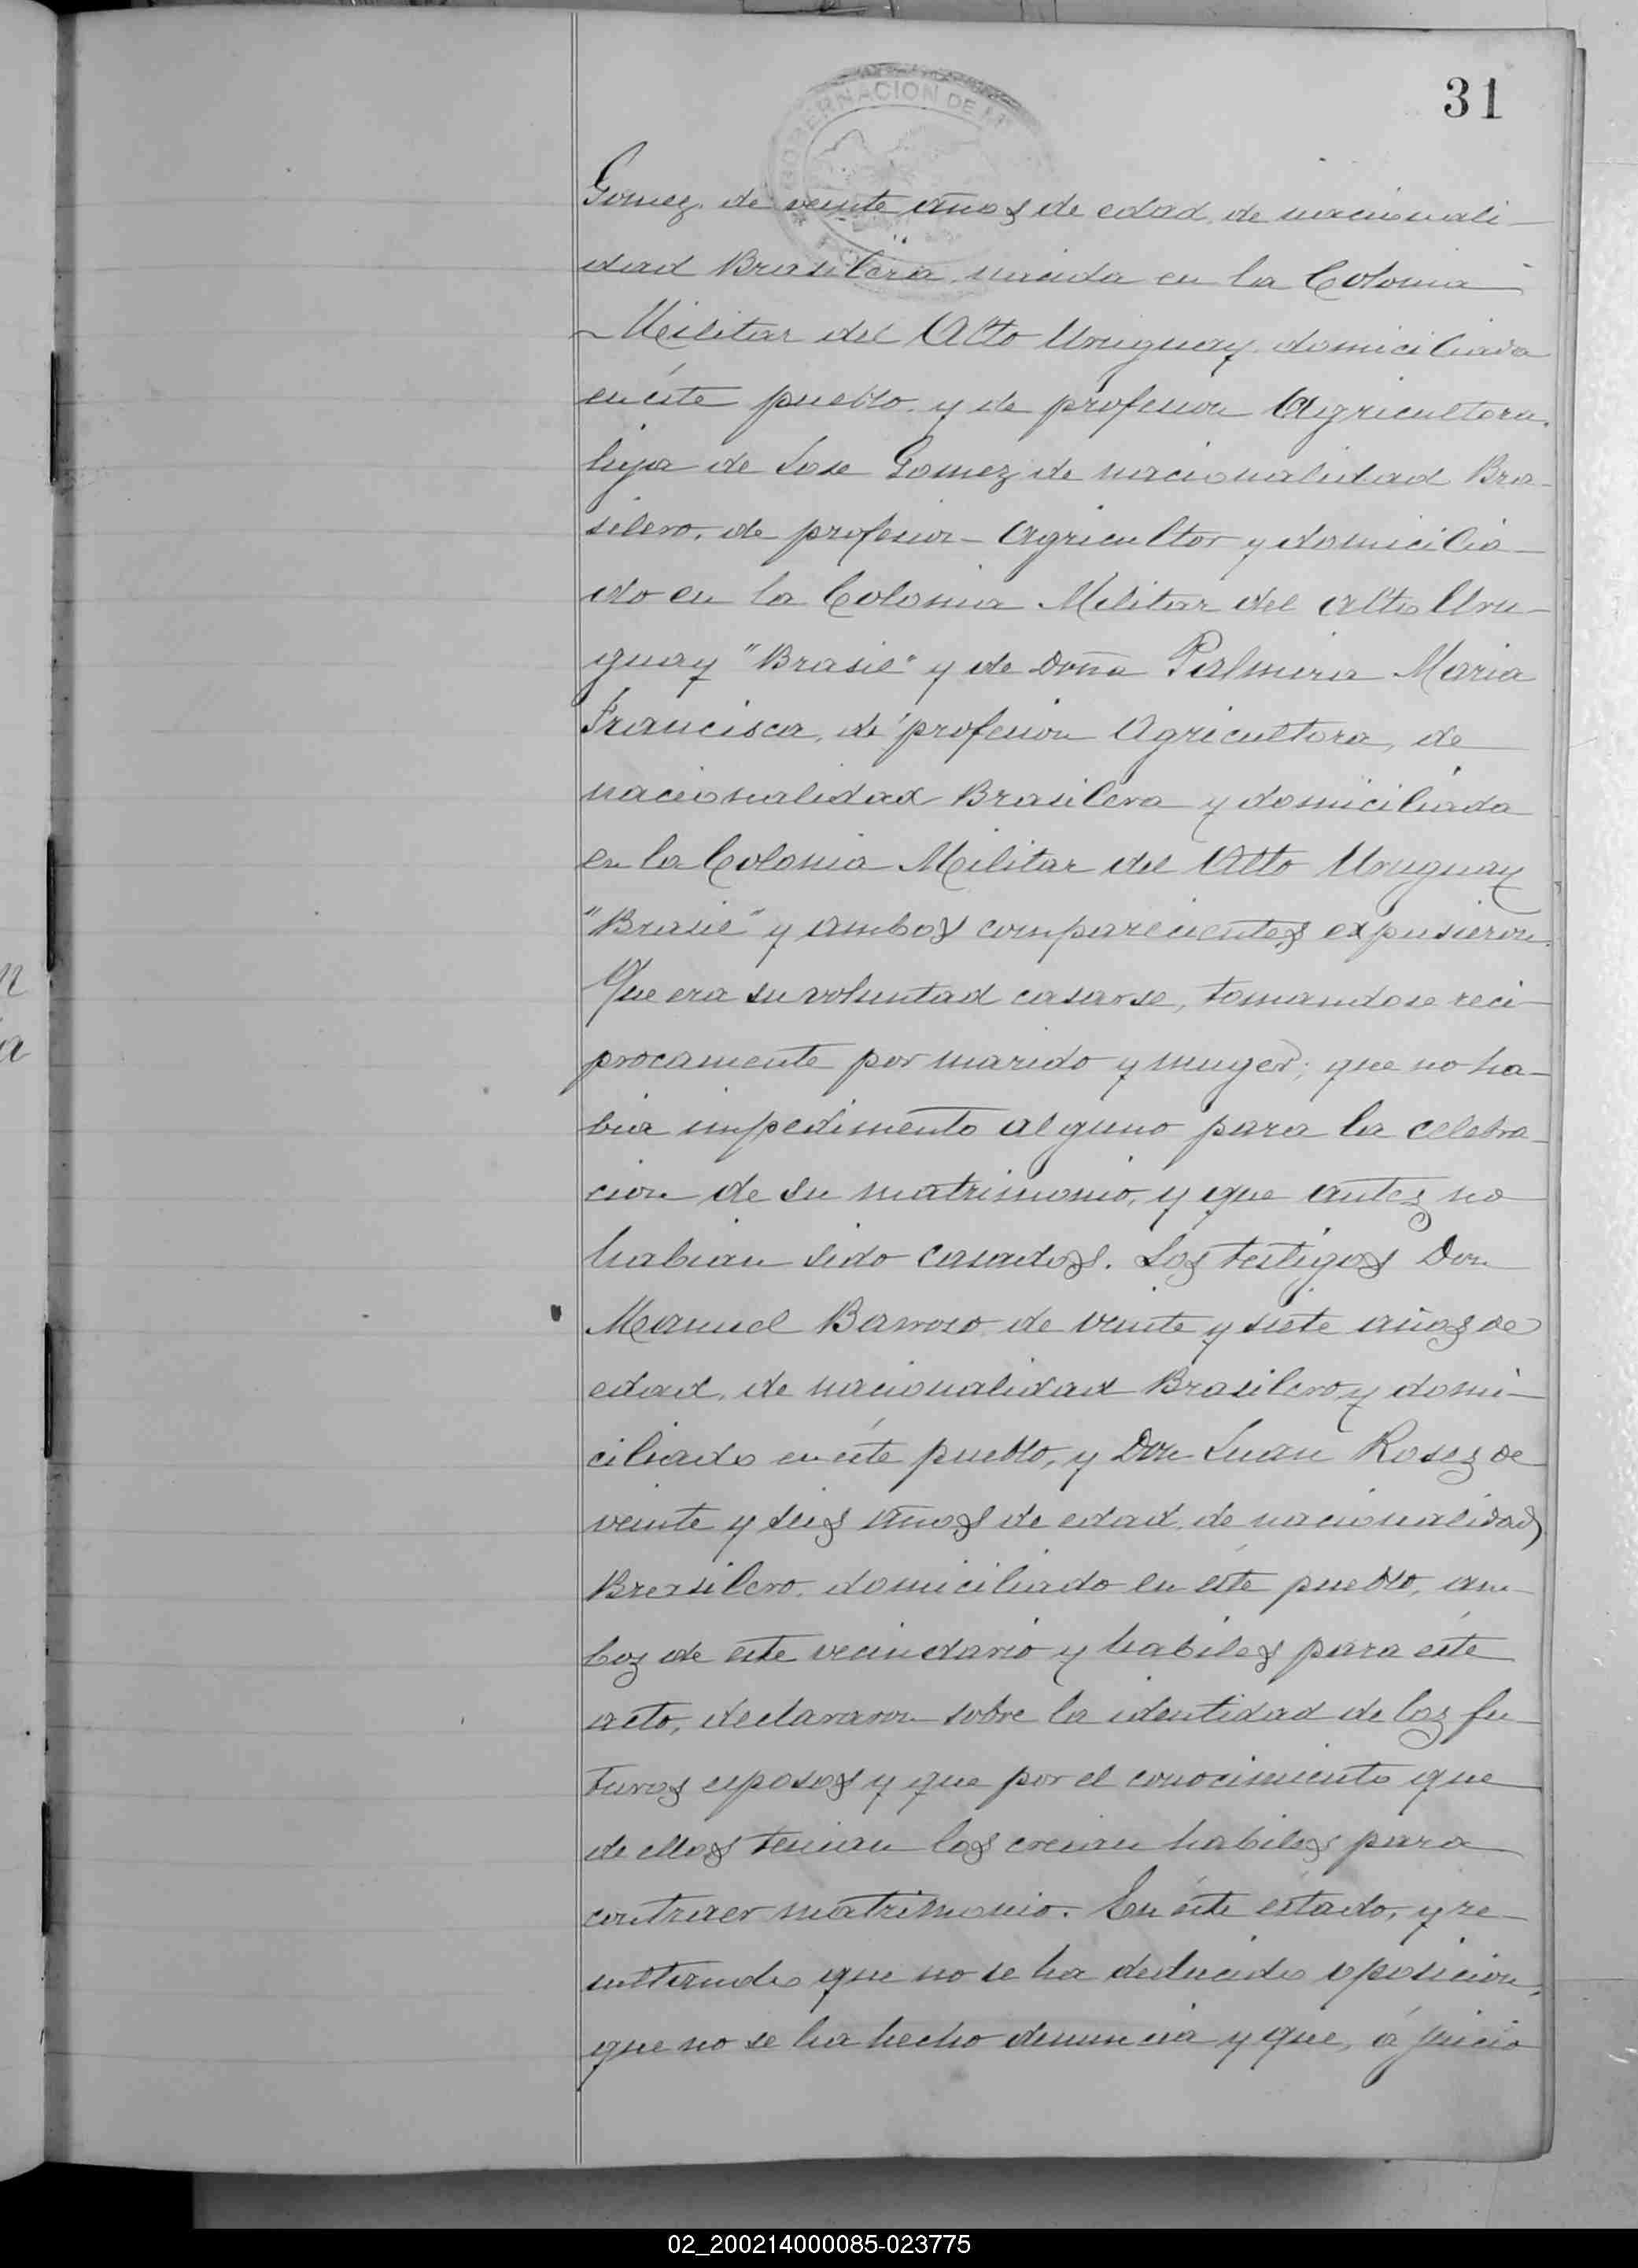 31
GOBERNACION DE
Gomez de veinte años de edad, de nacionali-
dad Brasilera, nacida en la Colonia
Militar del Alto Uruguay domiciliada
en éste pueblo y de profesion Agricultora,
hija de Jose Gomez de nacionalidad Bra-
silero, de profesion Agricultor y domicilia-
do en la Colonia Militar del Alto Uru-
guay "Brasil" y de Doña Palmira Maria
Francisca, de profesion Agricultora, de
nacionalidad Brasilera y domiciliada
en la Colonia Militar del Alto Uruguay
"Brasil" y ambos comparecientes expusieron
Que era su voluntad casarse, tomandose reci-
procamente por marido y muger; que no ha-
bia impedimento alguno para la celebra-
cion de su matrimonio, y que antes no
habian sido casados. Los testigos Don
Manuel Barroso de veinte y siete años de
edad, de nacionalidad Brasilero y domi-
ciliado en éste pueblo, y Don Juan Roses de
veinte y seis años de edad, de nacionalidad
Brasilero, domiciliado en éste pueblo, am-
bos de este vecindario y habiles para este
acto, declararon sobre la identidad de los fu-
turos esposos y que por el conocimiento que
de ellos tenian los creian habiles para
contraer matrimonio. En éste estado, y re-
sultando que no se ha deducido oposicion,
que no se ha hecho denuncia y que, á juicio
02_200214000085-023775